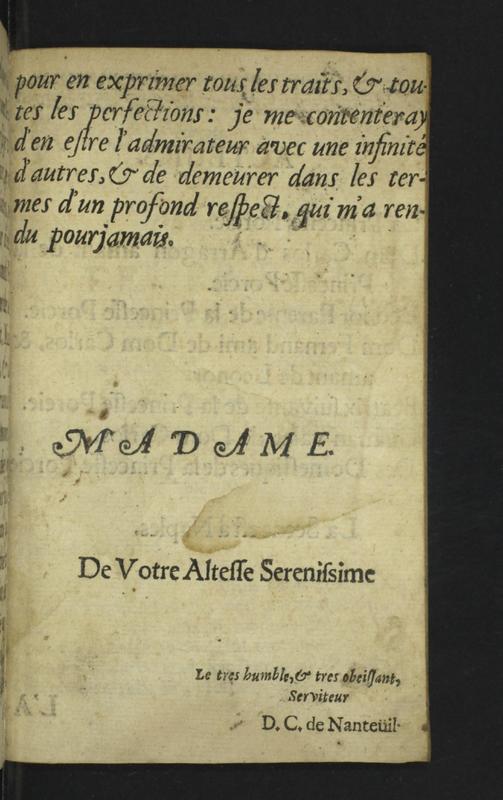 pour en exprimer tous les traits, & tou-
tes les perfections : je me contenteray
d'en eſtre l'admirateur avec une infinité
d'autres, & de demeurer dans les ter-
mes d'un profond reſpect, qui m'a ren-
du pour jamais.
MADAME.
De Votre Alteſſe Sereniſsime
Le tres humble, & tres obeiſſant,
Serviteur
D. C. de Nanteüil